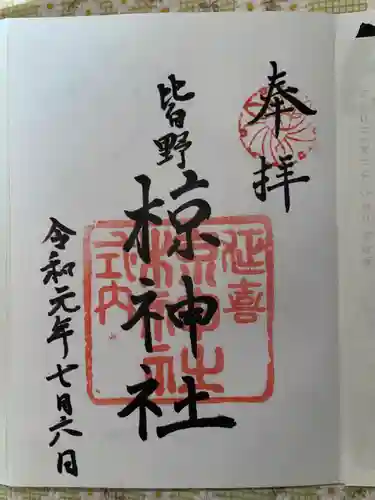 奉拝
皆野
椋神社
令和元年七月六日
延喜
椋神社
式内